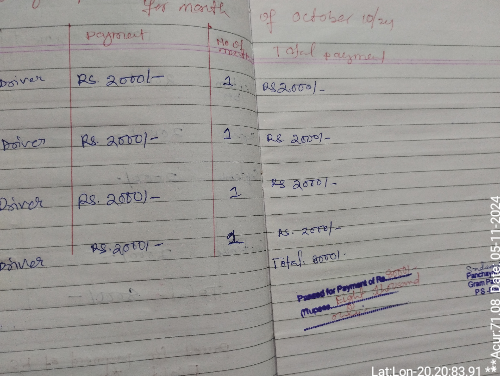 for month of october 10/24
payment No. of month Total payment
Driver RS. 2000/- 1 RS 2000/-
Driver RS. 2000/- 1 RS. 2000/-
Driver RS. 2000/- 1 RS 2000/-
Driver RS. 2000/- 1 RS. 2000/-
Total 8000/-
Passed for Payment of Rs. 8000/-
(Rupees Eight thousand
Gram P
P.S
Lat:Lon-20.20:83.91
**Acur:71.08 Date: 05-11-2024